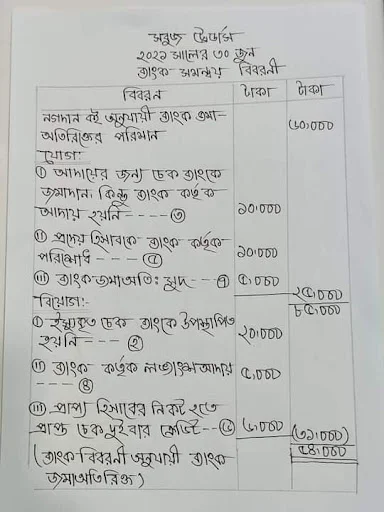 সবুজ ট্রেডার্স
২০২১ সালের ৩০ জুন
ব্যাংক সমন্বয় বিবরনী
বিবরন টাকা টাকা
নগদান বই অনুযায়ী ব্যাংক জমা-
অতিরিক্তের পরিমান ৬০,০০০
যোগ:
① আদায়ের জন্য চেক ব্যাংকে
জমাদান, কিন্তু ব্যাংক কর্তৃক
আদায় হয়নি - - - - ③ ১০,০০০
(ii) প্রদেয় হিসাবকে ব্যাংক কর্তৃক
পরিশোধ - - - - ১০,০০০
(iii) ব্যাংক জমাঅতি: সুদ - - - ৫,০০০
২৫,০০০
বিয়োগ:- ৮৫,০০০
① ইস্যুকৃত চেক ব্যাংকে উপস্থাপিত
হয়নি - - - - ② ২০,০০০
(ii) ব্যাংক কর্তৃক লভ্যাংশ আদায়
- - - - ④ ৫,০০০
(iii) প্রাপ্য হিসাবের নিকট হতে
প্রাপ্ত চেক দুইবার ক্রেডিট - - ৬,০০০ (৩১,০০০)
(ব্যাংক বিবরনী অনুযায়ী ব্যাংক ৫৪,০০০
জমাঅতিরিক্ত)